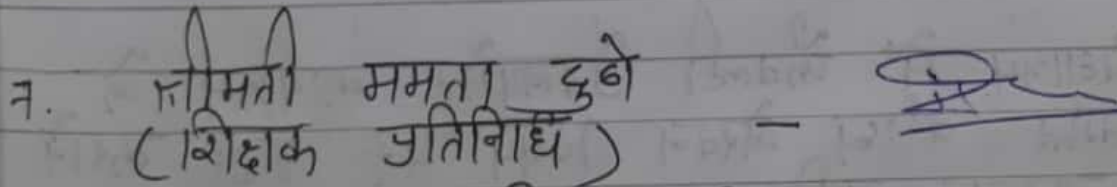 7. श्रीमती ममता दुबे -
(शिक्षक प्रतिनिधि)